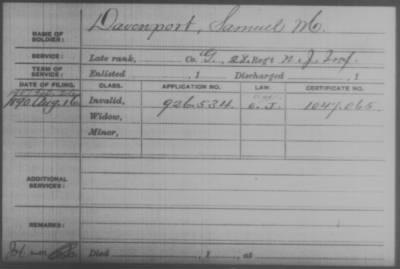 NAME OF SOLDIER: Davenport, Samuel M.
SERVICE: Late rank, Co. G, 2d, Reg't N. J. Inf.
TERM OF SERVICE: Enlisted , 1 Discharged , 1
DATE OF FILING. CLASS. APPLICATION NO. LAW. CERTIFICATE NO.
1890 Aug. 16 Invalid, 926.534. 1047.065.
Widow,
Minor,
ADDITIONAL SERVICES:
REMARKS:
Died , 1 , at